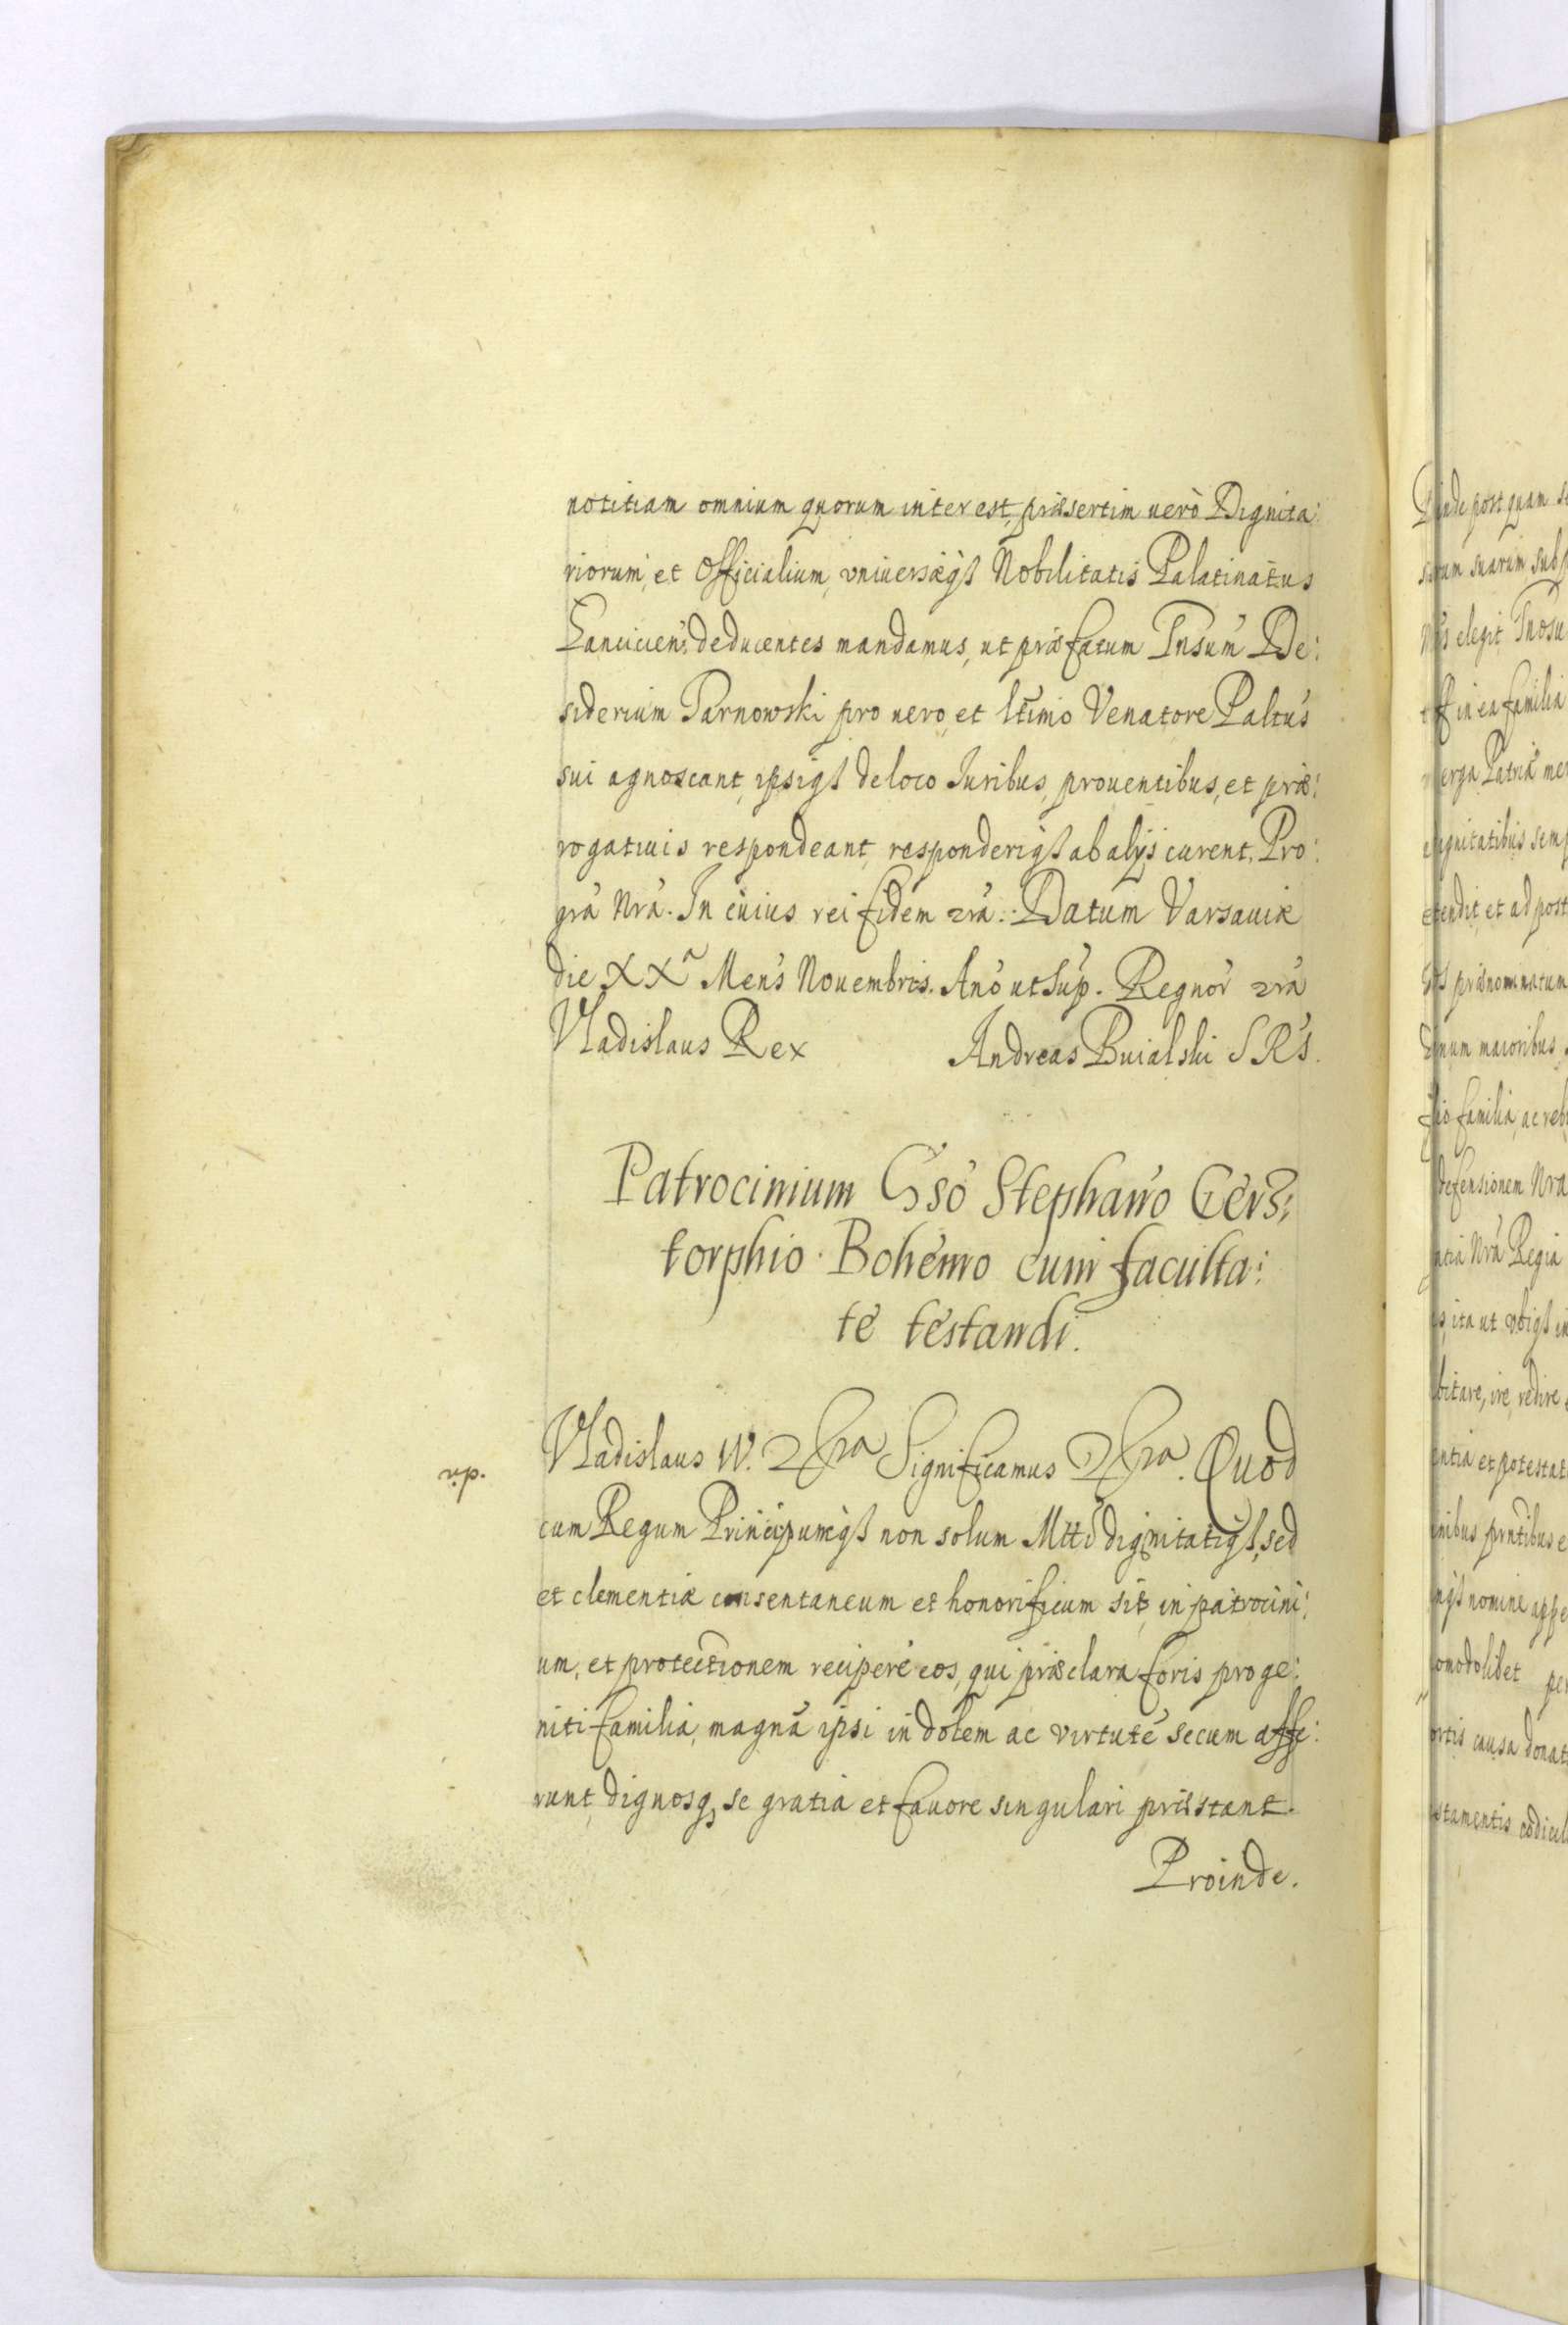 notitiam omnium quorum interest, præsertim uerò Dignita:
riorum, et Officialium, vniuersæqß Nobilitatis Palatinatus
Lanciciens: deducentes mandamus, ut præfatum Gnsum De:
siderium Tarnowski pro uero, et ltimo Venatore Paltus
sui agnoscant, ipsiqß de loco Iuribus, prouentibus, et præ:
rogatiuis respondeant, responderiqß ab alijs curent. Pro
gra Nra. In cuius rei fidem etra. Datum Varsauiæ
die XXa Mens Nouembris. Ano ut Sup. Regnor etra
Vladislaus Rex Andreas Buialski SRS.
Patrocinium Gso Stephano Gers:
torphio Bohemo cum faculta:
te testandi.
Vladislaus IV. etra Significamus etra. Quod
cum Regum Principumqß non solum Mtti dignitatiqß, sed
et clementiæ consentaneum et honorificum sit, in patrocini:
um, et protectionem recipere eos, qui præclara foris proge:
niti familia, magnã ipsi indolem ac virtutẽ secum affe:
runt, dignosq, se gratia et fauore singulari præstant.
Proinde.
Proinde postquam
suarum
elegit Gnosu
in ea familia
erga Patriã mer
dignitatibus semp
et ad post
prænominatum
maioribus
familia, ac reb
defensionem Nra
Nrã Regia
ita ut vbiqß in
ire, redire
et potestat
prntibus e
nomine appe
per
causa donat
codicil